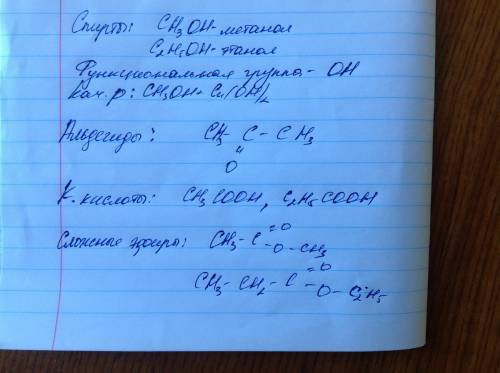 Спирты: CH3OH - метанол
C2H5OH - этанол
Функциональная группа - OH
Кач. р: CH3OH + Cu(OH)2
Альдегиды: CH3 - C - CH3
=
O
К. кислоты: CH3COOH, C2H5COOH
Сложные эфиры: CH3 - C =O
- O - CH3
CH3 - CH2 - C =O
- O - C2H5